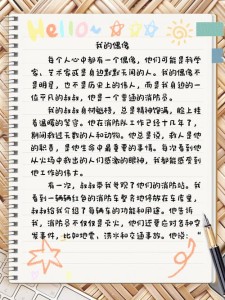 Hello~
我的偶像
每个人心中都有一个偶像，他们可能是科学
家、艺术家或是自边默默无闻的人。我的偶像不
是明星，也不是历史上的伟人，而是我身边的一
位平凡的叔叔，他是一个普通的消防员。
我的叔叔身材魁梧，总是精神饱满，脸上挂
着温暖的笑容。他在消防队工作已经十几年了，
期间救过无数的人和动物。他总是说，救人是他
的职责，是他生命中最重要的事情。每次看到他
从火场中救出的人们感激的眼神，我都能感受到
他工作的伟大。
有一次，叔叔带我参观了他们的消防站。我
看到一辆辆红色的消防车整齐地停放在车库里，
叔叔给我介绍了每辆车的功能和用途。他告诉
我，消防员不仅仅是灭火，他们还要应对各种突
发事件，比如地震、洪水和交通事故。他说：“